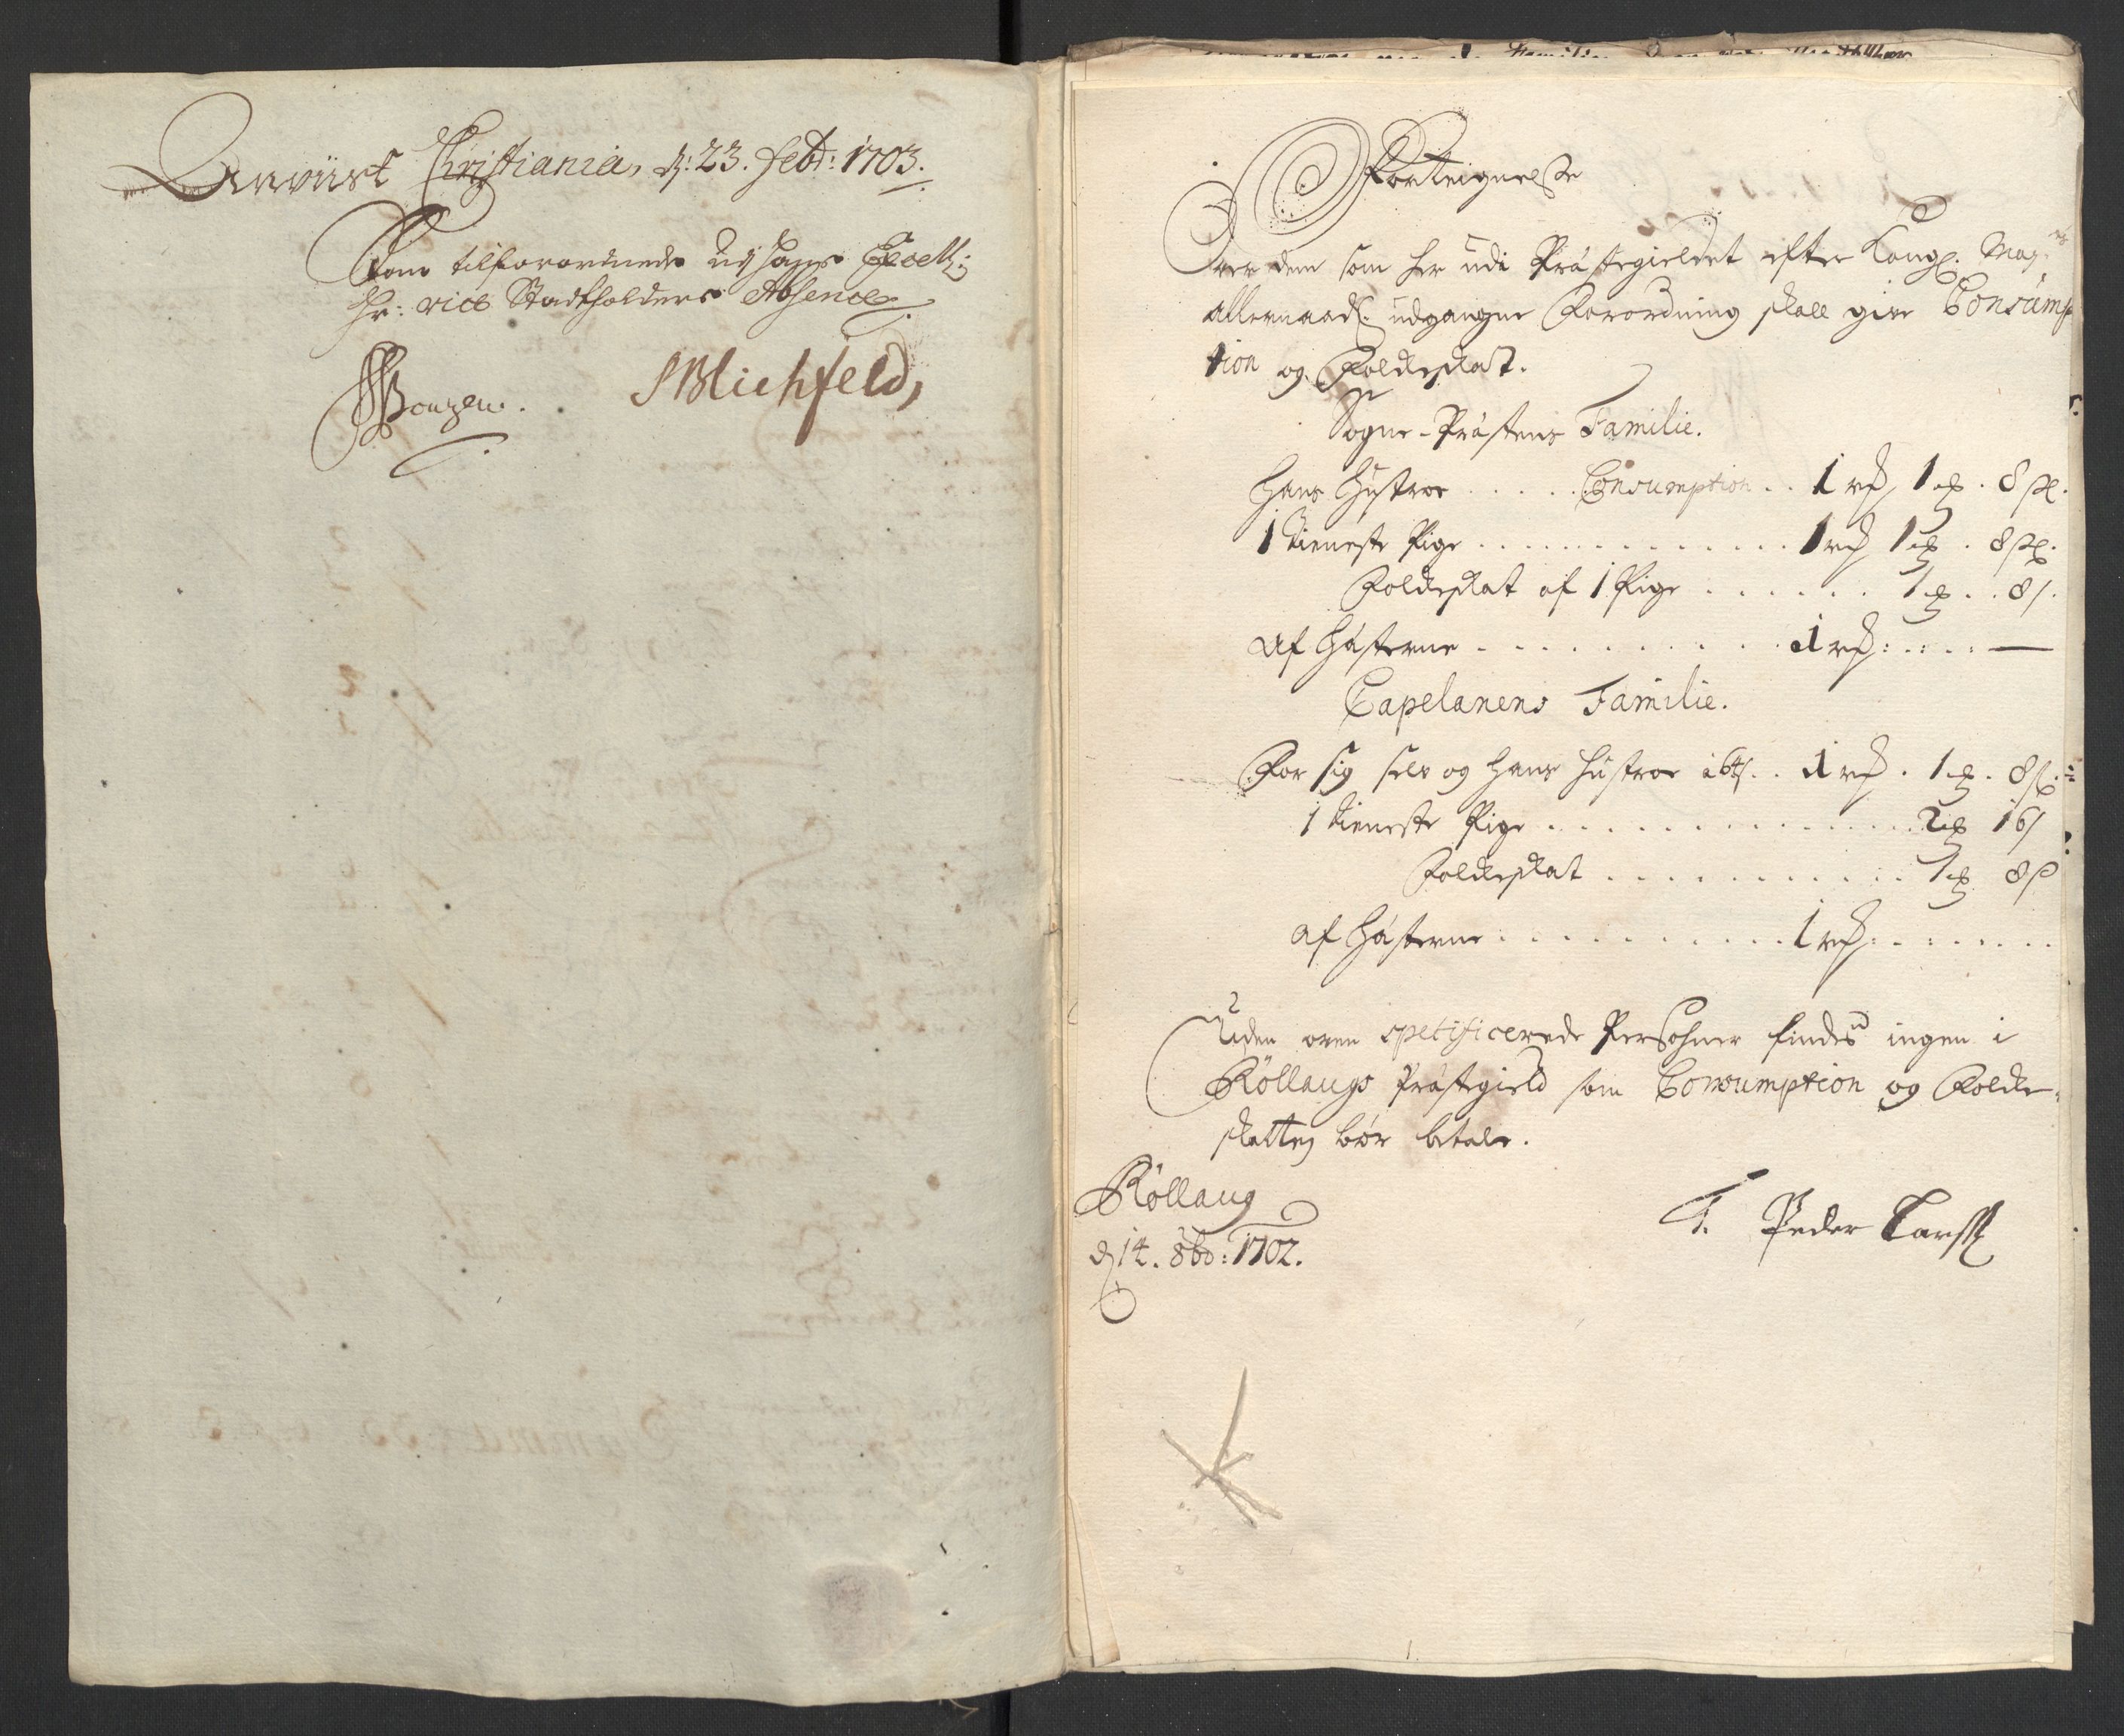 Anviist Christiania, d: 23. Febr: 1703.
Som tilforordnede udj hans Excell:
Hr: vice Stadtholders Absence.
Forteignelse
Over dem som her udi Præstegieldet efter Kongl. May
allernaadl. udgangne Forordning skall give Consump
tion og Folkeskat.
Sogne-Præstens Familie.
Hans Hustroe . . . . . Consumption . . 1 rd 1 ort . 8 sk.
1 tieneste Pige . . . . . . . . . . . . . . 1 rd 1 ort . 8 sk.
Folkeskat af 1 Pige . . . . . . 1 ort . . 8 s.
Af Hæsterne . . . . . . . . . . . 1 rd : . . : . . : —
Capelanens Familie.
For sig selv og hans Hustroe . . 1 rd . 1 ort . 8 s.
1 tieneste Pige . . . . . . . . . . . . . . . . 2 ort 16 s
Folkeskat . . . . . . . . . . . . 1 ort 8 s
af Hæsterne : . . . . . . . . . . . 1 rd : . . : . . . .
Uden oven spetificerede Persohner findes ingen i
Röllaugs Præstegield som Consumption og Folke-
skatten bör betale.
Röllaug
d 14. 8br: 1702.
T. Peder Larss